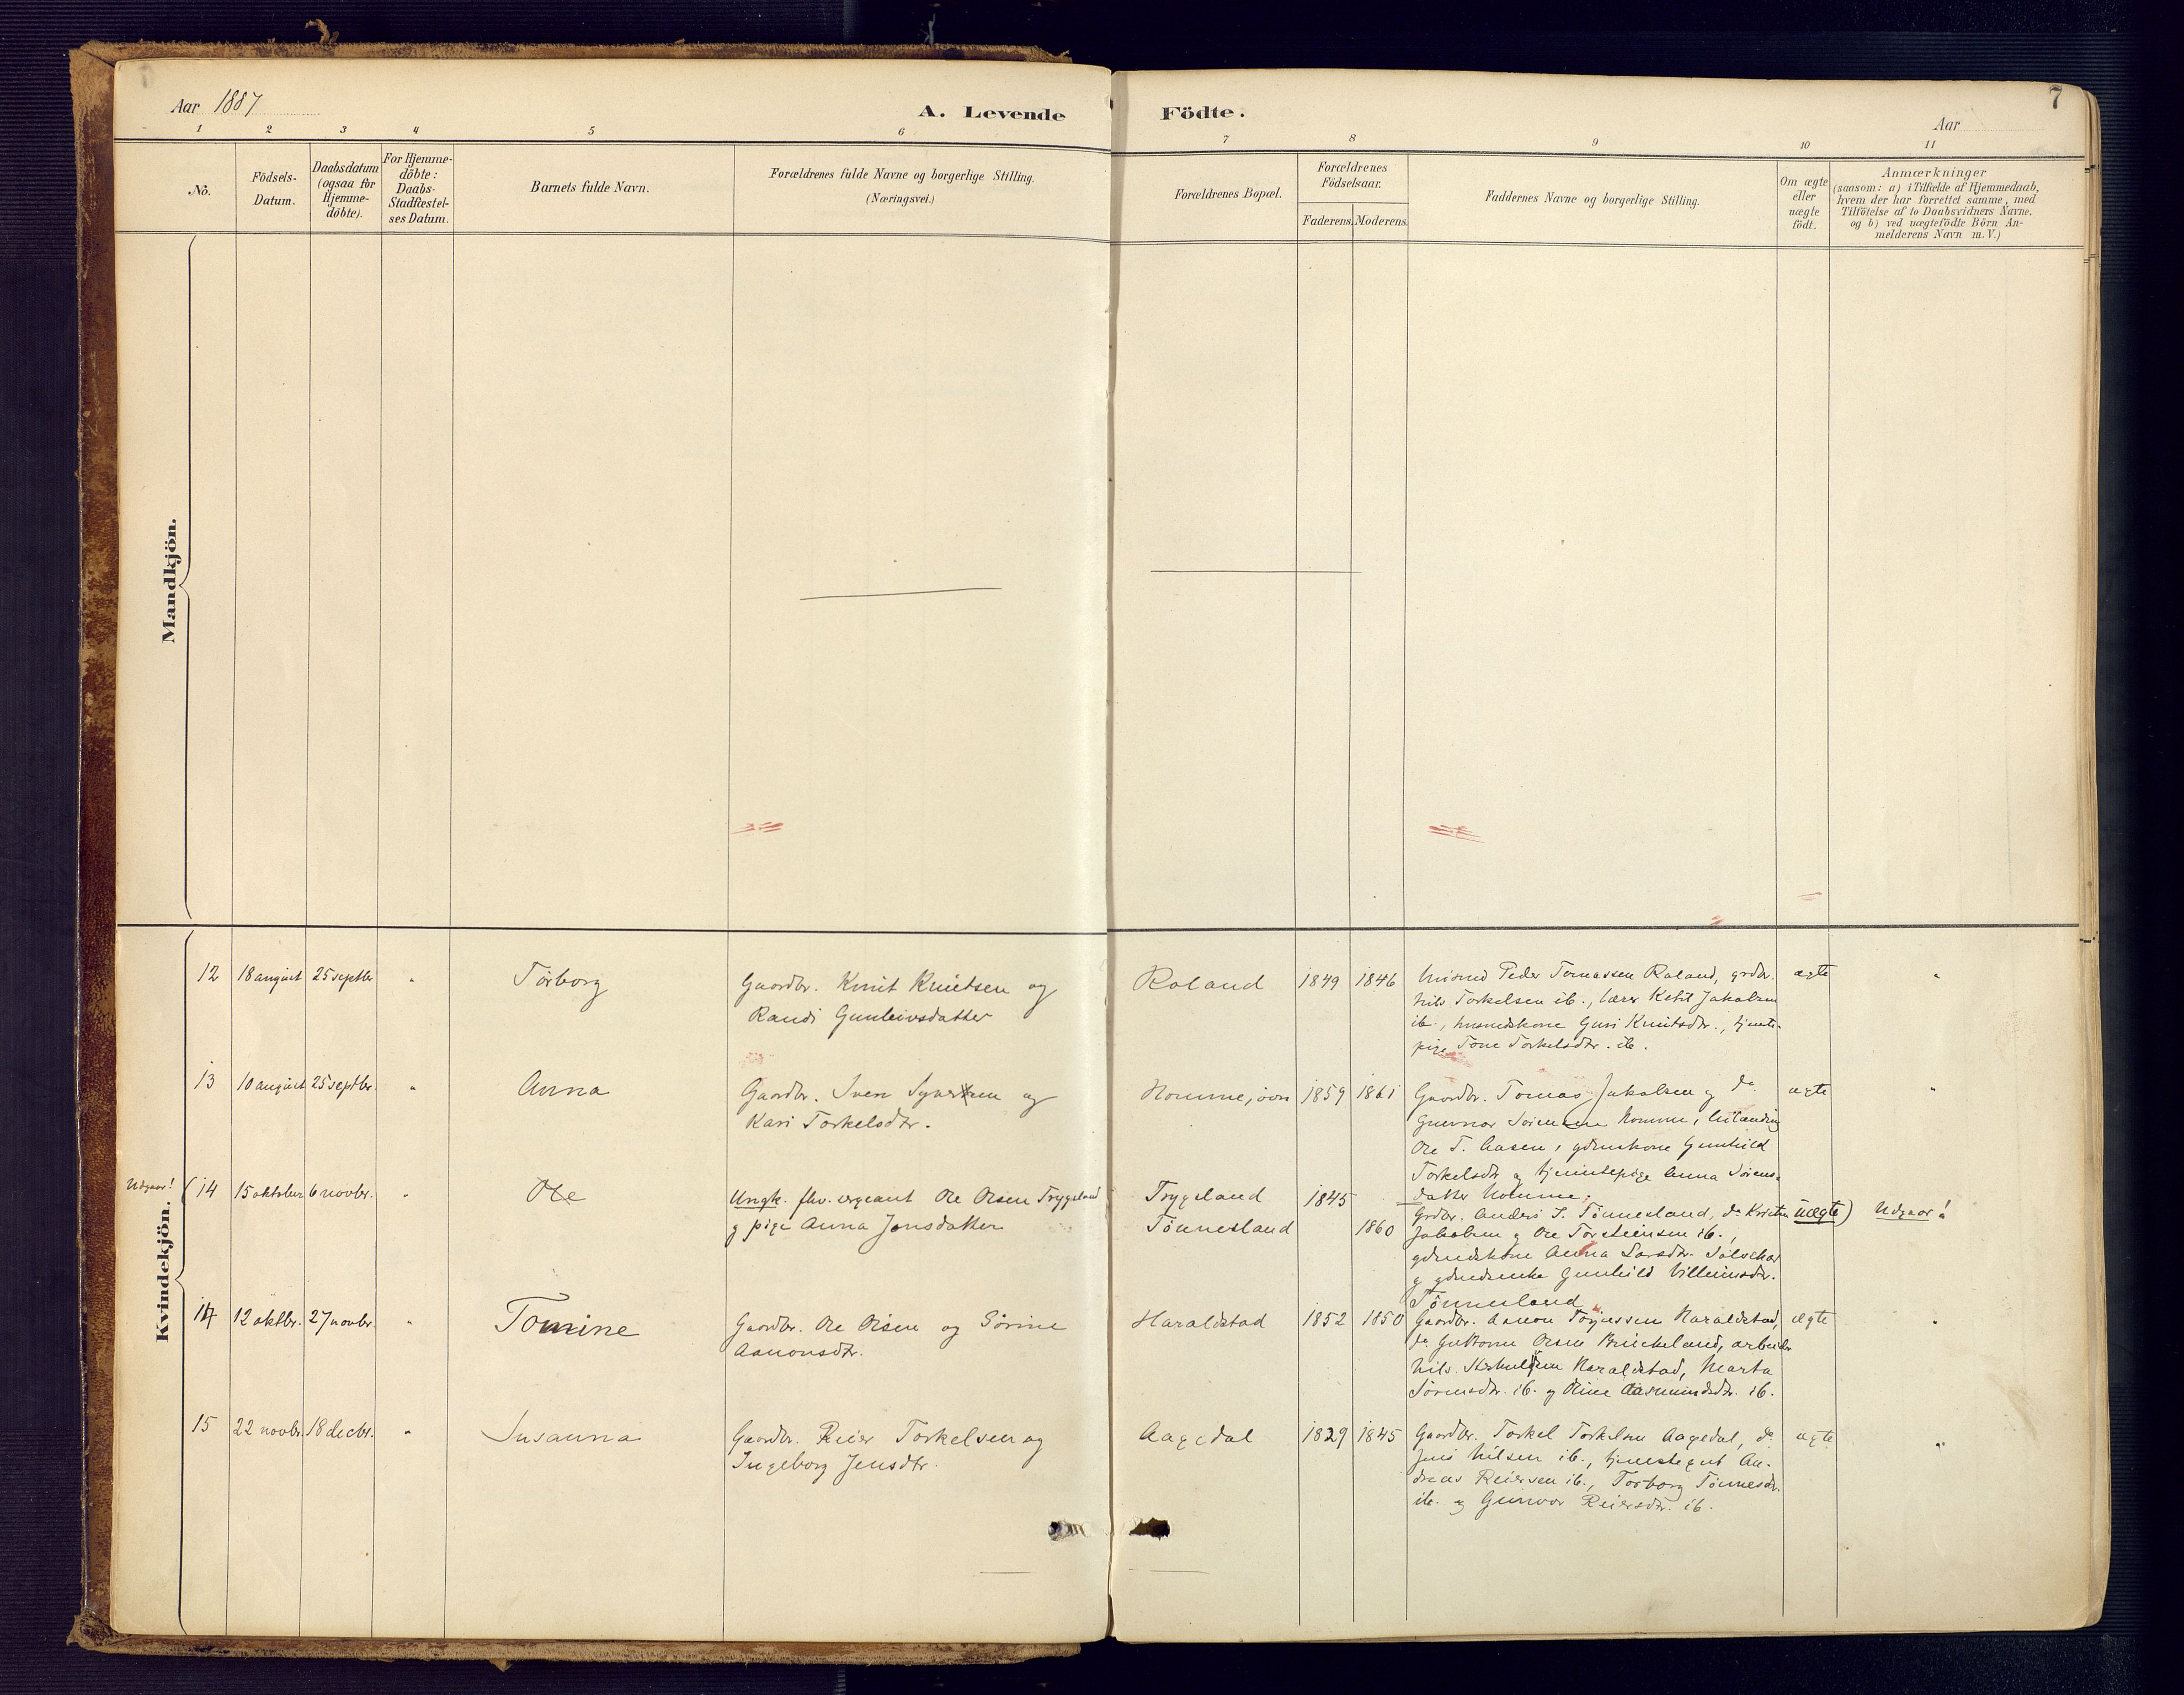 Aar 1887
A. Levende Födte.
7
Aar
1 2 3 4 5 6 7 8 9 10 11
No.
Födsels-
Datum.
Daabsdatum
(ogsaa for
Hjemme-
döbte).
For Hjemme-
döbte:
Daabs-
Stadfæstel-
ses Datum.
Barnets fulde Navn.
Forældrenes fulde Navne og borgerlige Stilling.
(Næringsvei.)
Forældrenes Bopæl.
Forældrenes
Födselsaar.
Faderens. Moderens.
Faddernes Navne og borgerlige Stilling.
Om ægte
eller
uægte
födt.
Anmærkninger
(saasom: a) i Tilfælde af Hjemmedaab,
hvem der har forrettet samme, med
Tilföielse af to Daabsvidners Navne,
og b) ved uægtefödte Börn An-
melderens Navn m. V.)
Mandkjön.
Kvindekjön.
12 18 august 25 septbr " Torborg
Gaardbr. Knut Knutsen og
Randi Gunleivsdatter
Roland 1849 1846
Husmd Peder Tomassen Roland, grdbr.
Nils Torkelsen ib., lærer Ketil Jakobsen
ib., husmdskone Guri Knutsdtr., tjeneste-
pige Tone Torkelsdtr. ib.
ægte "
13 10 august 25 septbr. " Anna
Gaardbr. Sven Syversen og
Kari Torkelsdtr.
Homme, övre 1859 1861
Gaardbr. Tomas Jakobsen og do
Gunvor Homme,
Ole T. Aasen, gdmskone Gunhild
Torkelsdtr og tjenestepige Anna Sörens-
datter Homme.
ægte "
Udgaar! (14 15 oktober 6 novbr. " Ole
Ungk. fhv. sergeant Ole Olsen Trygsland
og pige Anna Jensdatter
Trygsland 1845
Tönnesland 1860
Grdbr. Anders S. Tönnesland, do Kristen
Jakobsen og Ole Torsteinsen ib.,
gdmdskone Anna Larsdtr.
og gdmdsenke Gunhild Villumsdtr.
Tönnesland
uægte) Udgaar!
14 12 oktbr. 27 novbr. " Tomine
Gaardbr. Ole Olsen og Sörine
Aanonsdtr.
Haraldstad 1852 1850
Gaardbr. Aanon Torjussen Haraldstad,
do Guttorm Olsen arbeider
Nils Haraldstad, Marta
Sörensdtr. ib. og Oline Aasmundsdtr. ib.
ægte "
15 22 novbr. 18 decbr. " Susanna
Gaardbr. Reier Torkelsen og
Ingeborg Jensdtr.
Aagedal 1829 1845
Gaardbr. Torkel Torkelsen Aagedal, do
Jens Nilsen ib., tjenestegut An-
dreas Reiersen ib., Torborg Tönnesdtr.
ib. og Gunvor Reiersdtr. ib.
ægte "